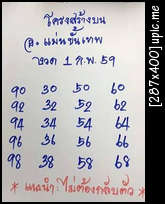 โครงสร้างบน
อ. แม่นขั้นเทพ
งวด 1 ก.พ. 59
90 30 50 60
92 32 52 62
94 34 54 64
96 36 56 66
98 38 58 68
* แนะนำ: ไม่ต้องกลับตัว *
[287x400] upic.me